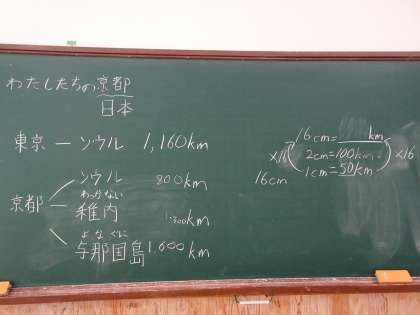 わたしたちの京都
日本
東京 ー ソウル 1,160km
京都 ソウル 800km
わっかない
稚内 1,300km
よなぐに
与那国島 1,600km
16cm= km
×16 2cm=100km ×16
1cm=50km
16cm